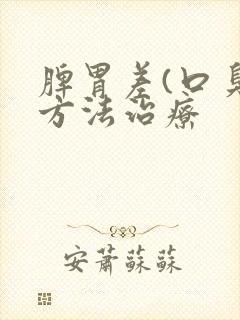 脾胃差(口臭
方法治療
安蕭蘇蘇